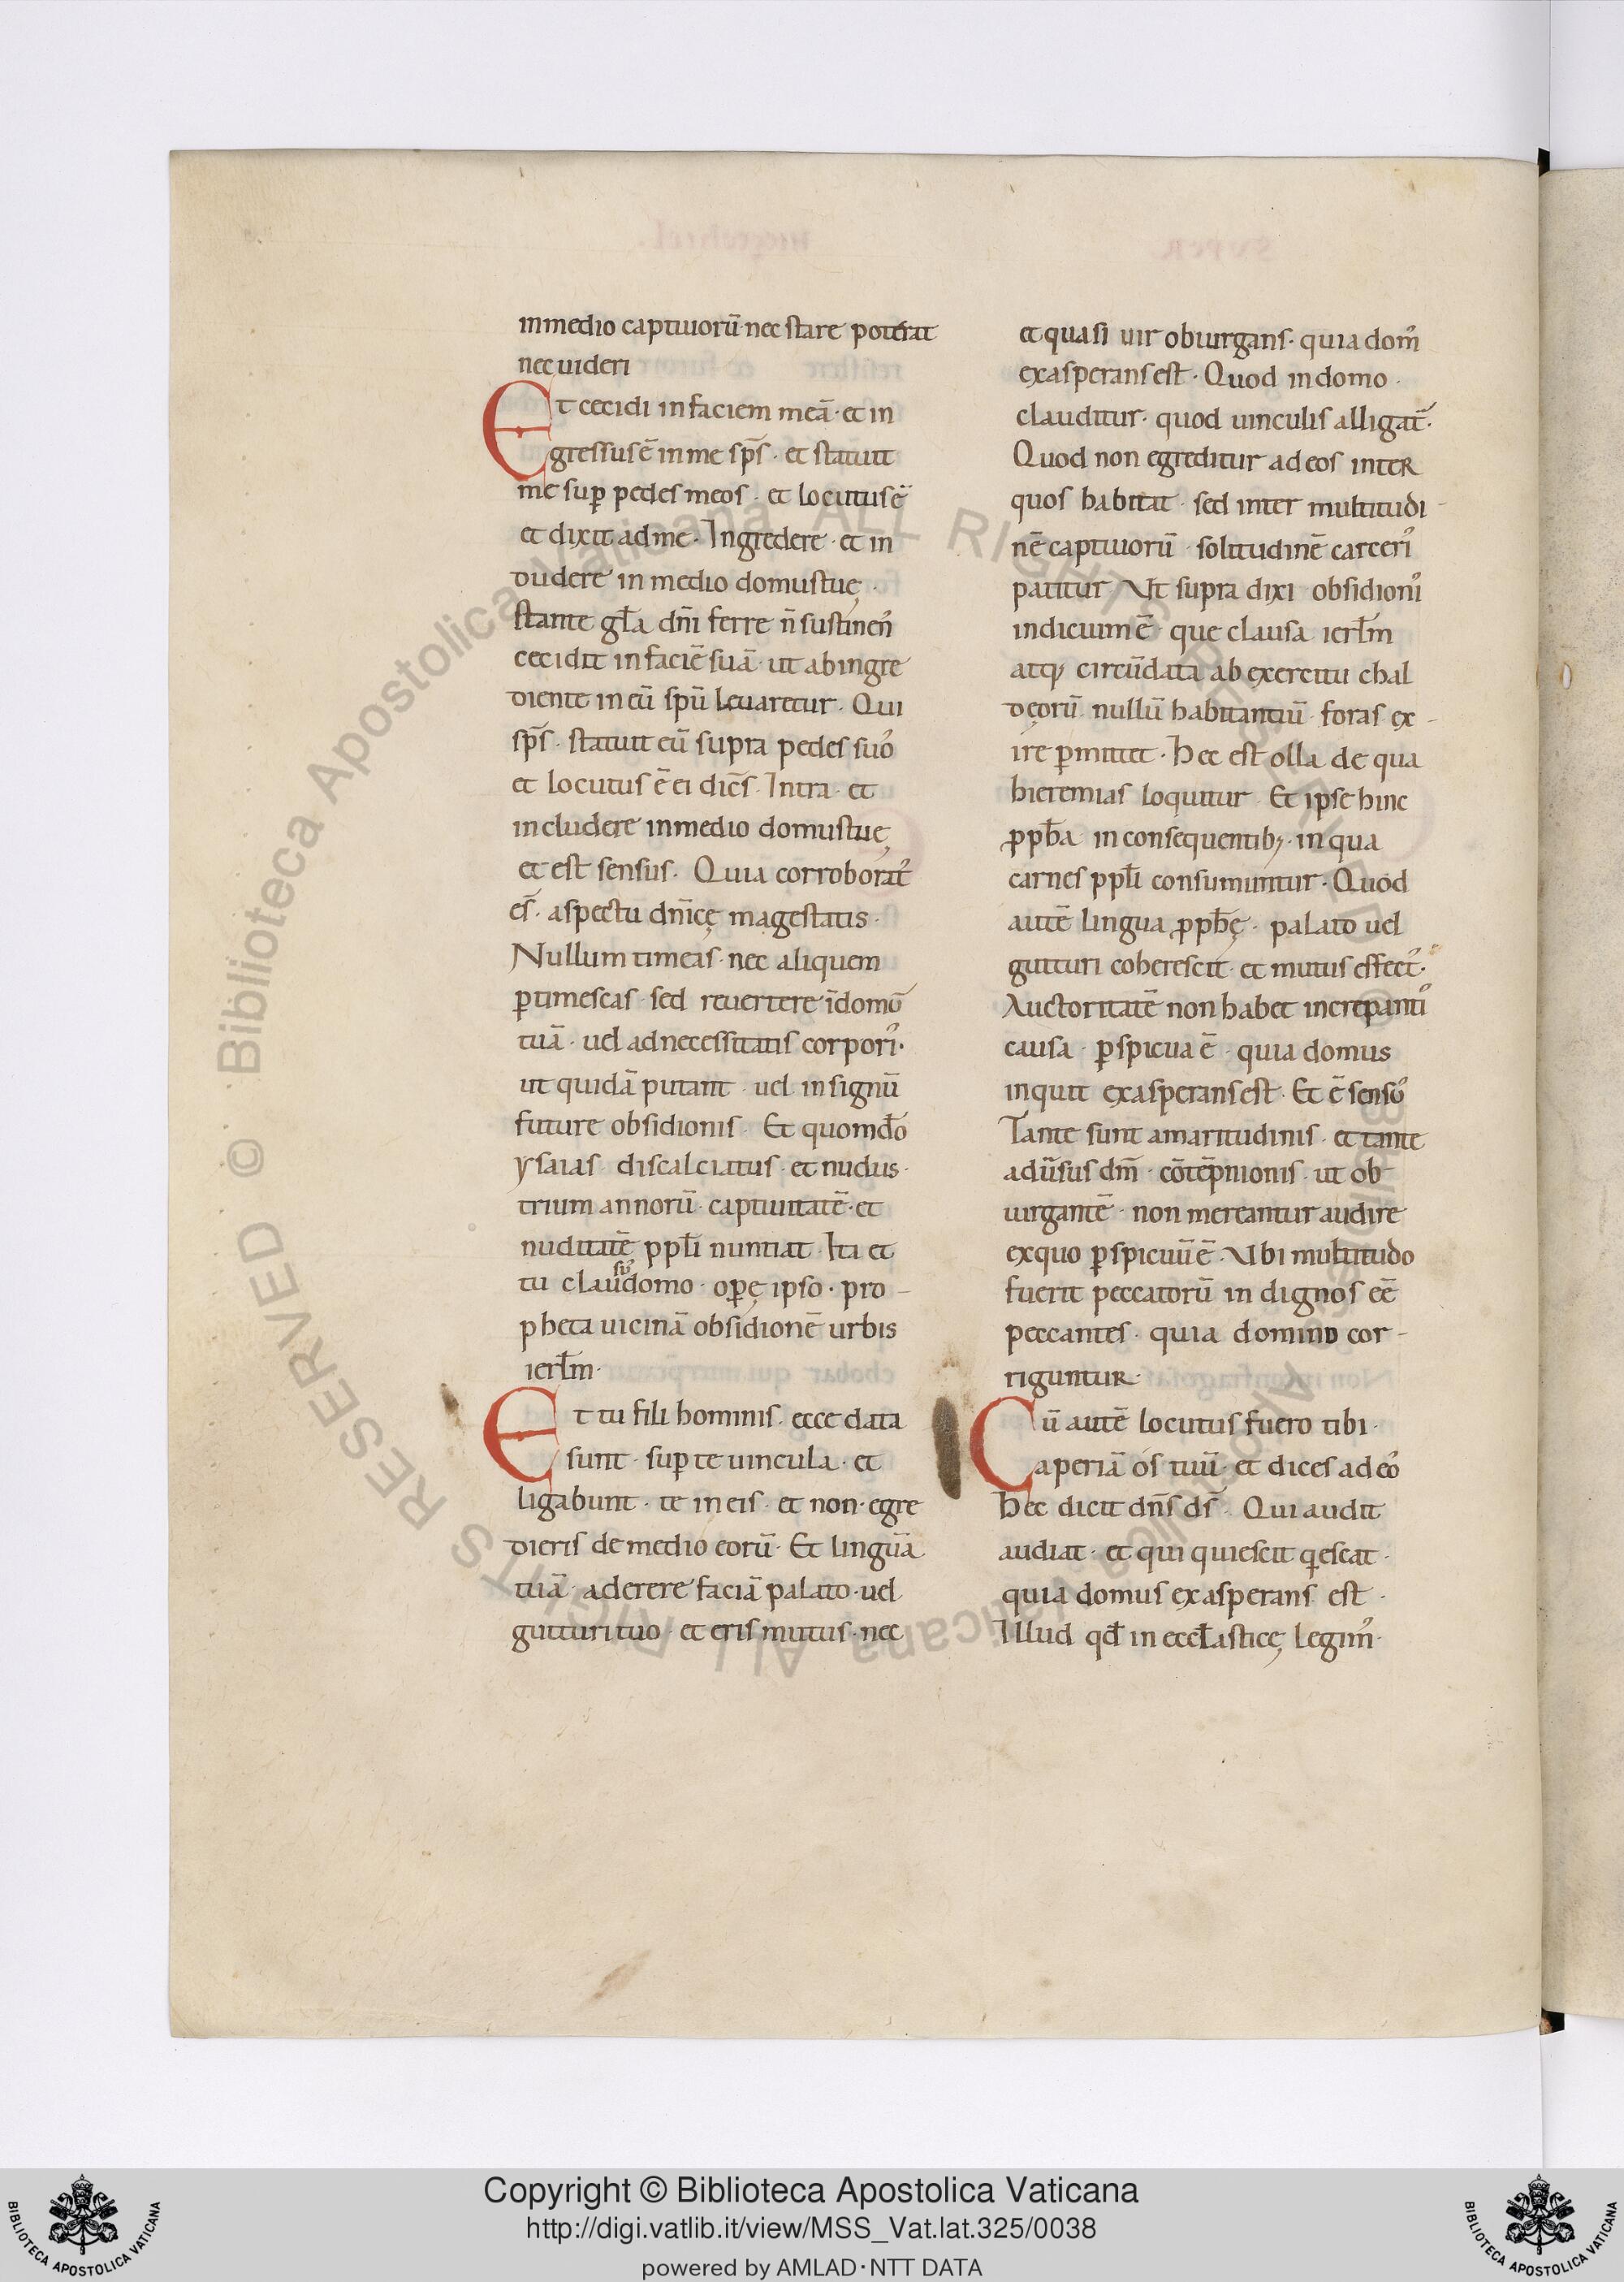 inmedio captiuorū· nec stare poterat
nec uideri
Et cecidi infaciem meā· et in
gressus ē inme sp̄s· et statuit
me sup̱ pedes meos· et locutus ē
et dixit adme· Ingredere· et in
cludere in medio domus tuę·
stante gl̄a dn̄i ferre n̄ sustinen̉
cecidit infaciē suā· ut ab ingre
diente in eū spū leuaretur· Qui
sp̄s· statuit eū supra pedes suo᾿
et locutus ē ei dic̄s· Intra· et
includere inmedio domus tuę
et est sensus· Quia corroborat᾿
es̄· aspectu dn̄icę magestatis·
Nullum timeas· nec aliquem
ꝑtimescas· sed reuertere īdomū
tuā· uel adnecessitatis corpori᾿·
ut quidā putant· uel insignū
future obsidionis· Et quomd̄o
ysaias discalciatus· et nudus·
trium annorū· captiuitatē· et
nuditatē ppl̄i nuntiat· Ita et
tu clausu᾿ domo· oꝑę ipso· pro-
pheta uicinā obsidionē urbis
ierl̄m·
Et tu fili hominis· ecce data
sunt· sup̱ te uincula· et
ligabunt· te in eis· et non· egre
dieris de medio eorū· Et linguā
tuā· aderere faciā palato· uel
gutturi tuo· et eris mutus· nec
et quasi uir obiurgans· quia dom᾿
exasperans est· Quod indomo·
clauditur· quod uinculis alligat̄·
Quod non egreditur ad eos inter
quos habitat· sed inter multitudi-
nē captiuorū· solitudinē carceri᾿
patitur· Ut supra dixi obsidioni᾿
indicium ē· que clausa ierl̄m
atq; circūdata ab exercitu chal
deorū nullū habitantiū· foras ex-
ire ꝑmittet· Hec est olla de qua
hieremias loquitur· Et ipse hinc
ꝓph̄a in consequentib;· in qua
carnes ppl̄i consumuntur· Quod
autē lingua ꝓph̄ę· palato uel
gutturi coherescit· et mutus effect᾿·
Auctoritatē non habet increpanti᾿
causa· ꝑspicua ē· quia domus
inquit exasperans est· Et ē sensu᾿
Tante sunt amaritudinis· et tante
adūsus dm̄· cōtēpnionis· ut ob
iurgantē· non mereantur audire
exquo ꝑspicuū ē· Ubi multitudo
fuerit peccatorū in dignos eē
peccantes· quia domino cor-
riguntur·
Cū autē locutus fuero tibi·
aperiā os tuū· et dices ad eo᾿
Hec dicit dn̄s ds̄· Qui audit
audiat· et qui quiescit q̱escat·
quia domus exasperans est·
Illud qd̄ in eccl̄asticę legim᾿·
© Biblioteca Apostolica Vaticana ALL RIGHTS RESERVED
Copyright © Biblioteca Apostolica Vaticana
http://digi.vatlib.it/view/MSS_Vat.lat.325/0038
powered by AMLAD·NTT DATA
BIBLIOTECA APOSTOLICA VATICANA
BIBLIOTECA APOSTOLICA VATICANA